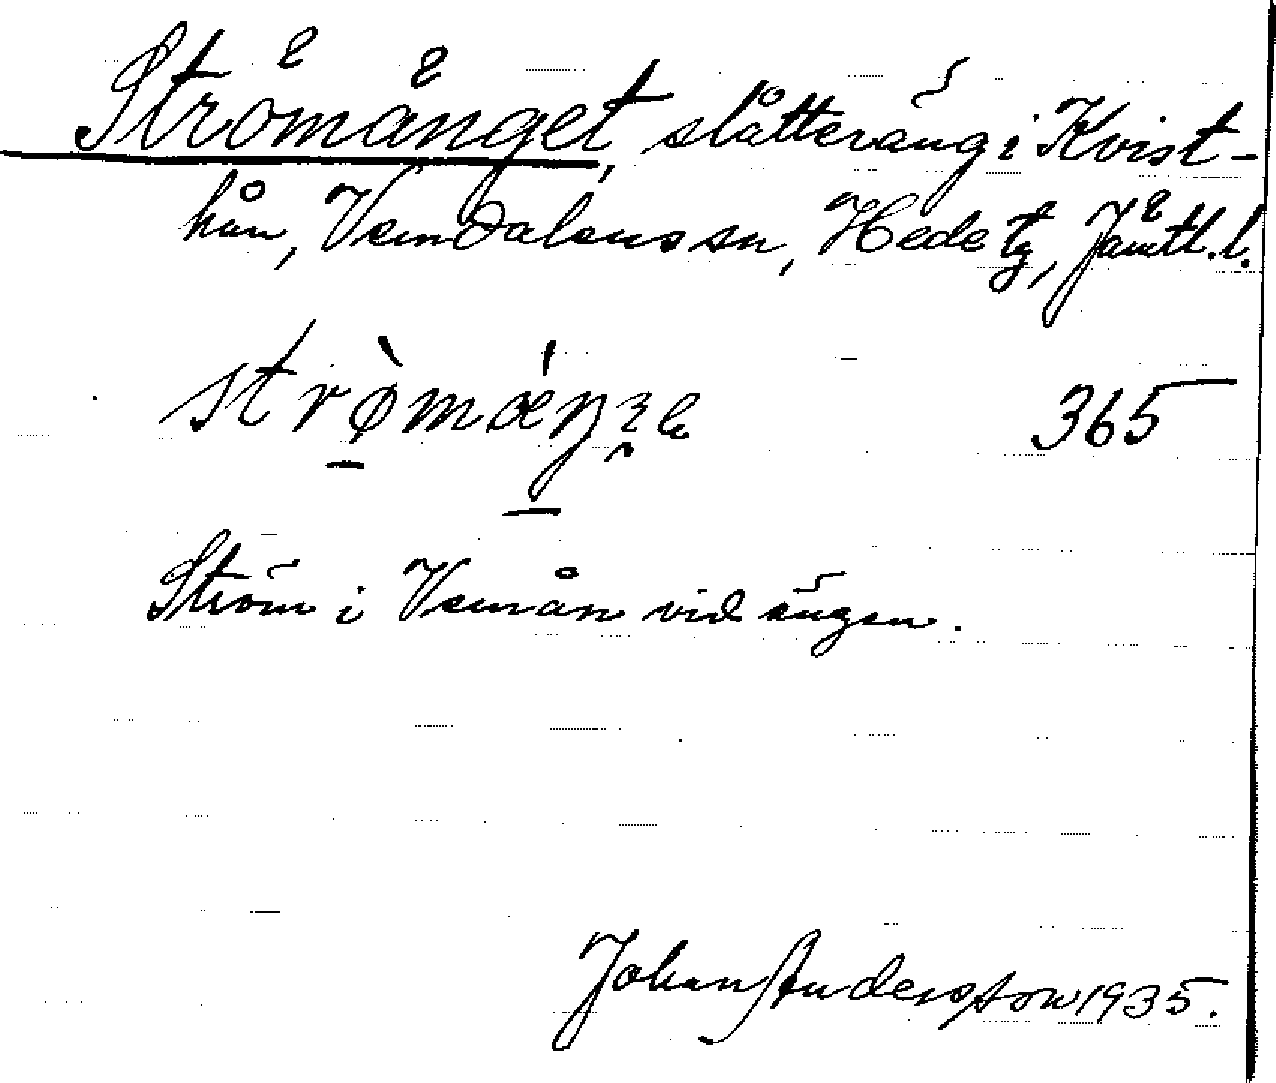 Strömänget, slåtteräng i Kvist-
hån, Vemdalens sn, Hede tg, Jämtl. l.
strø̀mæŋ 365
Ström i Vemån vid ängen.
Johan Andersson 1935.